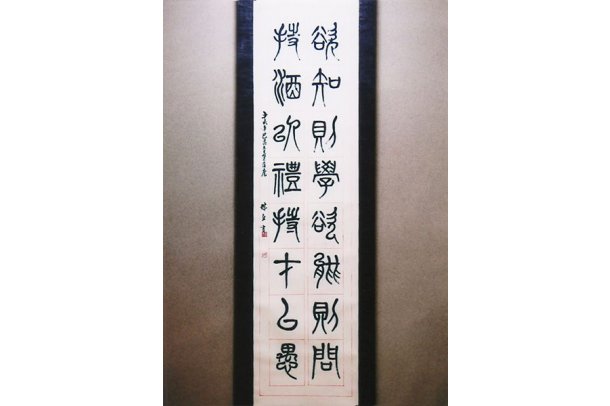 欲知則學欲能則問
持酒以禮持才以愚